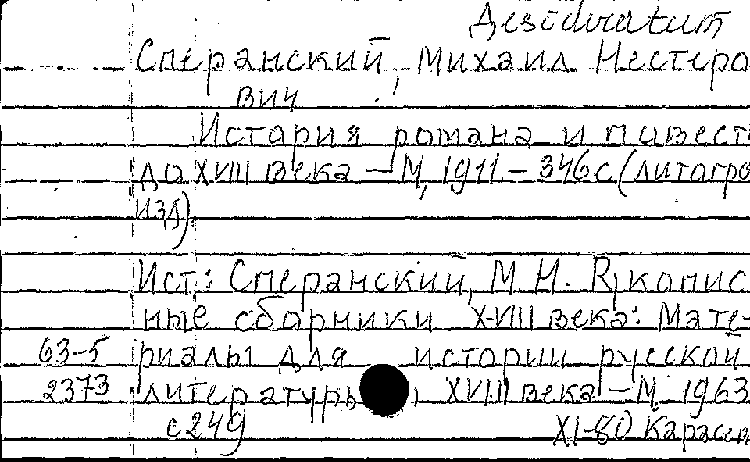 Desideratum
Сперанский, Михаил Нестеро
вич
История романа и повест
до XVIII века – М, 1911 – 346 с (литогро
изд).
Ист.: Сперанский, М. Н. Рукопис
ные сборники XVIII века: Мате-
63-5 риалы для истории русской
2373 литературы XVIII века – М 1963
с 249
XI-80 Карасе